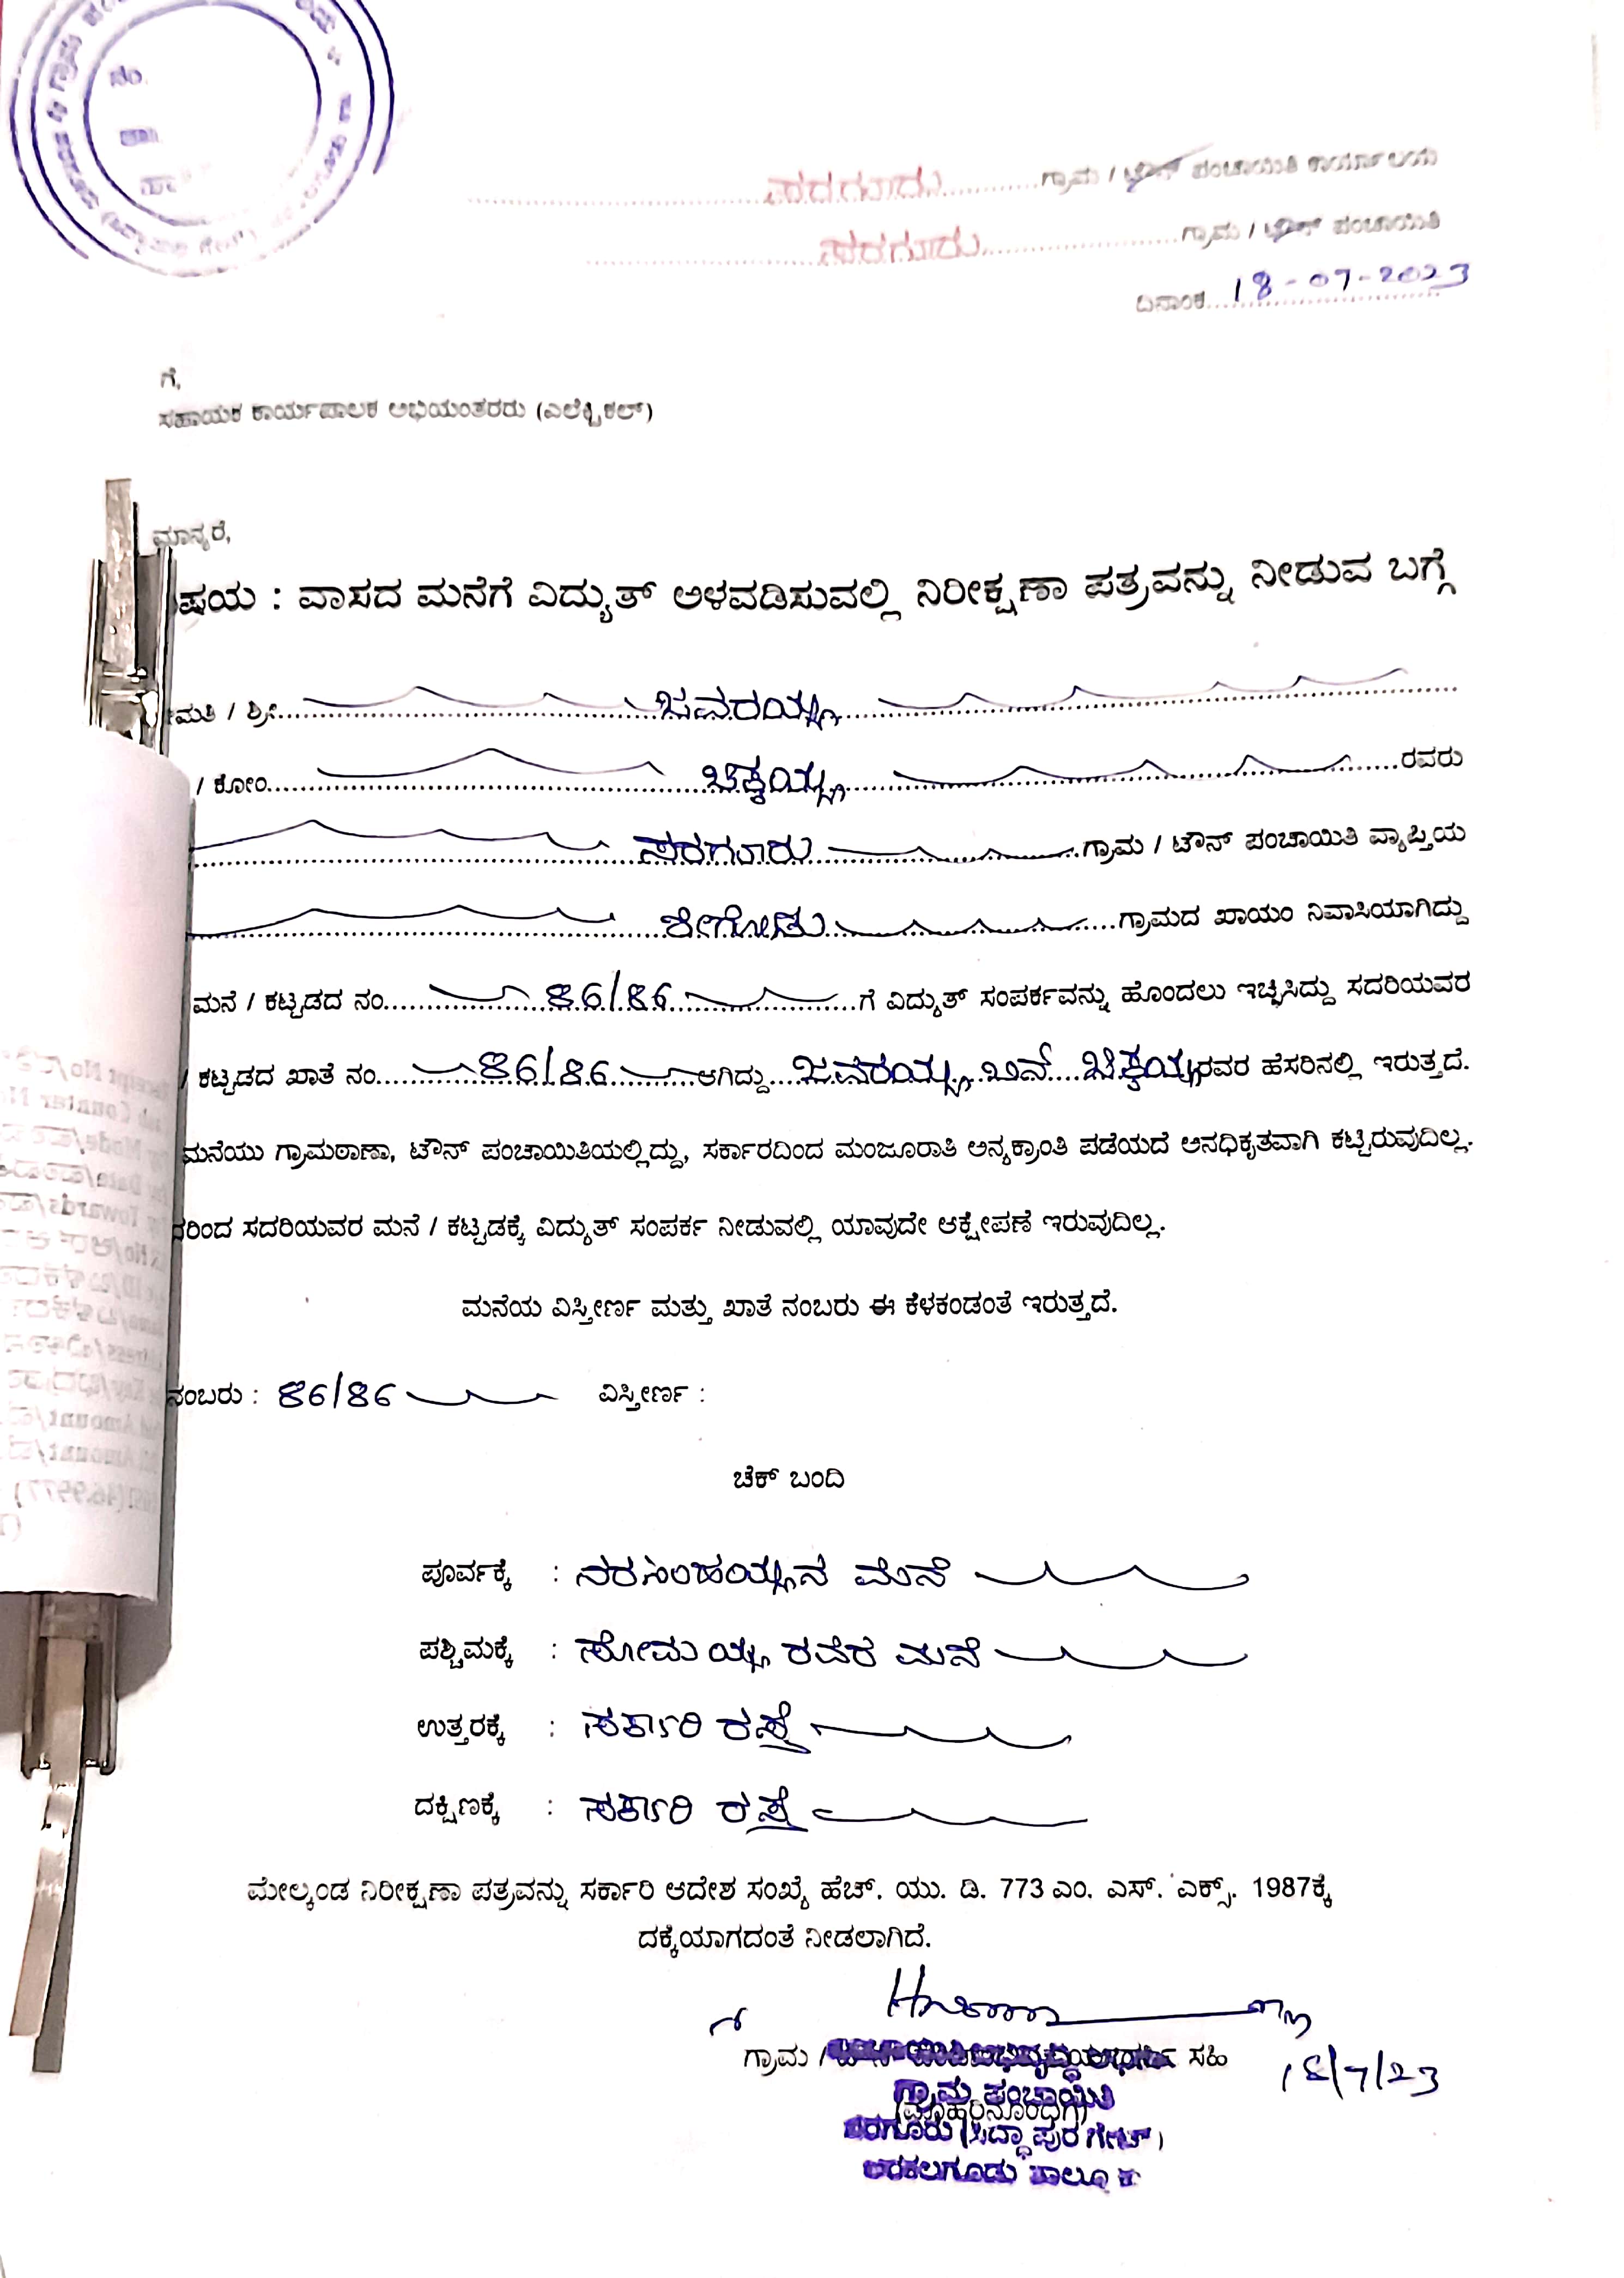 ನಂ.
ಸರಗೂರು ಗ್ರಾಮ / ಟೌನ್ ಪಂಚಾಯಿತಿ ಕಾರ್ಯಾಲಯ
ಸರಗೂರು ಗ್ರಾಮ / ಟೌನ್ ಪಂಚಾಯಿತಿ
ದಿನಾಂಕ 18-07-2023
ಗೆ,
ಸಹಾಯಕ ಕಾರ್ಯಪಾಲಕ ಅಭಿಯಂತರರು (ಎಲೆಕ್ಟ್ರಿಕಲ್)
ಮಾನ್ಯರೆ,
ಷಯ : ವಾಸದ ಮನೆಗೆ ವಿದ್ಯುತ್ ಅಳವಡಿಸುವಲ್ಲಿ ನಿರೀಕ್ಷಣಾ ಪತ್ರವನ್ನು ನೀಡುವ ಬಗ್ಗೆ
ಮತಿ / ಶ್ರೀ ಜವರಯ್ಯ
/ ಕೋಂ ಚಿಕ್ಕಯ್ಯ ರವರು
ಸರಗೂರು ಗ್ರಾಮ / ಟೌನ್ ಪಂಚಾಯಿತಿ ವ್ಯಾಪ್ತಿಯ
ಶೀಗೋಡು ಗ್ರಾಮದ ಖಾಯಂ ನಿವಾಸಿಯಾಗಿದ್ದು
ಮನೆ / ಕಟ್ಟಡದ ನಂ 86/86 ಗೆ ವಿದ್ಯುತ್ ಸಂಪರ್ಕವನ್ನು ಹೊಂದಲು ಇಚ್ಛಿಸಿದ್ದು ಸದರಿಯವರ
/ ಕಟ್ಟಡದ ಖಾತೆ ನಂ 86/86 ಆಗಿದ್ದು ಜವರಯ್ಯ ಬಿನ್ ಚಿಕ್ಕಯ್ಯ ರವರ ಹೆಸರಿನಲ್ಲಿ ಇರುತ್ತದೆ.
ಮನೆಯು ಗ್ರಾಮಠಾಣಾ, ಟೌನ್ ಪಂಚಾಯಿತಿಯಲ್ಲಿದ್ದು, ಸರ್ಕಾರದಿಂದ ಮಂಜೂರಾತಿ ಅನ್ಯಕ್ರಾಂತಿ ಪಡೆಯದೆ ಅನಧಿಕೃತವಾಗಿ ಕಟ್ಟಿರುವುದಿಲ್ಲ.
ರಿಂದ ಸದರಿಯವರ ಮನೆ / ಕಟ್ಟಡಕ್ಕೆ ವಿದ್ಯುತ್ ಸಂಪರ್ಕ ನೀಡುವಲ್ಲಿ ಯಾವುದೇ ಆಕ್ಷೇಪಣೆ ಇರುವುದಿಲ್ಲ.
ಮನೆಯ ವಿಸ್ತೀರ್ಣ ಮತ್ತು ಖಾತೆ ನಂಬರು ಈ ಕೆಳಕಂಡಂತೆ ಇರುತ್ತದೆ.
ನಂಬರು : 86/86 ವಿಸ್ತೀರ್ಣ :
ಚೆಕ್ ಬಂದಿ
ಪೂರ್ವಕ್ಕೆ : ನರಸಿಂಹಯ್ಯನ ಮನೆ
ಪಶ್ಚಿಮಕ್ಕೆ : ಸೋಮಯ್ಯ ರವರ ಮನೆ
ಉತ್ತರಕ್ಕೆ : ಸರ್ಕಾರಿ ರಸ್ತೆ
ದಕ್ಷಿಣಕ್ಕೆ : ಸರ್ಕಾರಿ ರಸ್ತೆ
ಮೇಲ್ಕಂಡ ನಿರೀಕ್ಷಣಾ ಪತ್ರವನ್ನು ಸರ್ಕಾರಿ ಆದೇಶ ಸಂಖ್ಯೆ ಹೆಚ್. ಯು. ಡಿ. 773 ಎಂ. ಎಸ್. ಎಕ್ಸ್. 1987ಕ್ಕೆ
ದಕ್ಕೆಯಾಗದಂತೆ ನೀಡಲಾಗಿದೆ.
ಗ್ರಾಮ / ಸಹಿ
18/7/23
ಗ್ರಾಮ ಪಂಚಾಯಿತಿ
(ಮೊಹರಿನೊಂದಿಗೆ)
ಸರಗೂರು (ಸಿದ್ಧಾಪುರ ಗೇಟ್)
ಅರಕಲಗೂಡು ತಾಲ್ಲೂಕು